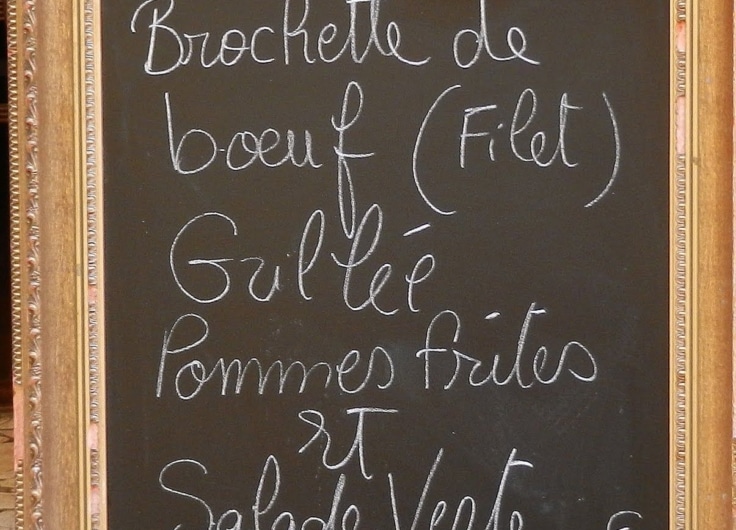 Brochette de
bœuf (Filet)
Grillée
Pommes frites
et
Salade Verte